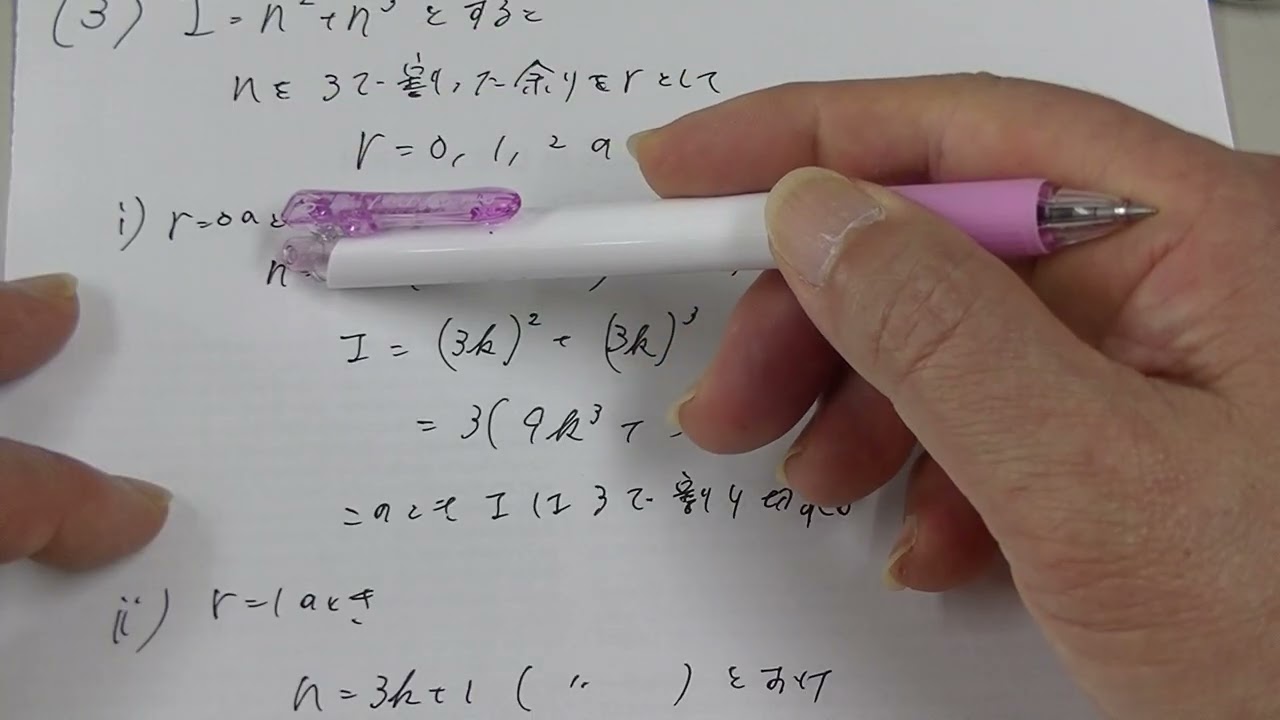 (3) I = n² + n³ とすると
nを3で割った余りをrとして
r = 0, 1, 2 の
i) r=0のと
n
I = (3k)² + (3k)³
= 3(9k³ +
このときIは3で割り切れる
ii) r=1のとき
n=3k+1 ( 〃 ) とおいて